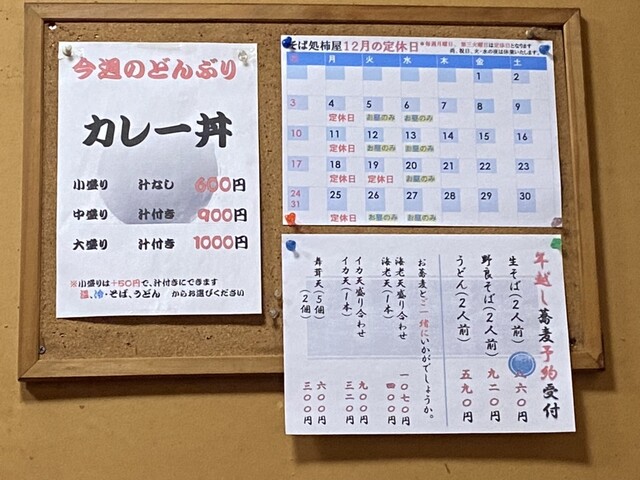 今週のどんぶり
カレー丼
小盛り 汁なし 600円
中盛り 汁付き 900円
大盛り 汁付き 1000円
※小盛りは+50円で、汁付きにできます
温、冷・そば、うどん からお選びください
そば処柿屋 12月の定休日
※毎週月曜日、第三火曜日は定休日となります
尚、祝日、火・水の夜は休業いたします。
日 月 火 水 木 金 土
1 2
3 4 5 6 7 8 9
定休日 お昼のみ お昼のみ
10 11 12 13 14 15 16
定休日 お昼のみ お昼のみ
17 18 19 20 21 22 23
定休日 定休日 お昼のみ
24 25 26 27 28 29 30
31
定休日 お昼のみ お昼のみ
年越し蕎麦予約受付
生そば(2人前) 六〇円
野良そば(2人前) 九二〇円
うどん(2人前) 五九〇円
お蕎麦とご一緒にいかがでしょうか。
海老天盛り合わせ 一〇七〇円
海老天(1本) 四〇〇円
イカ天盛り合わせ 九〇〇円
イカ天(1本) 三二〇円
舞茸天(5個) 六〇〇円
(2個) 三〇〇円